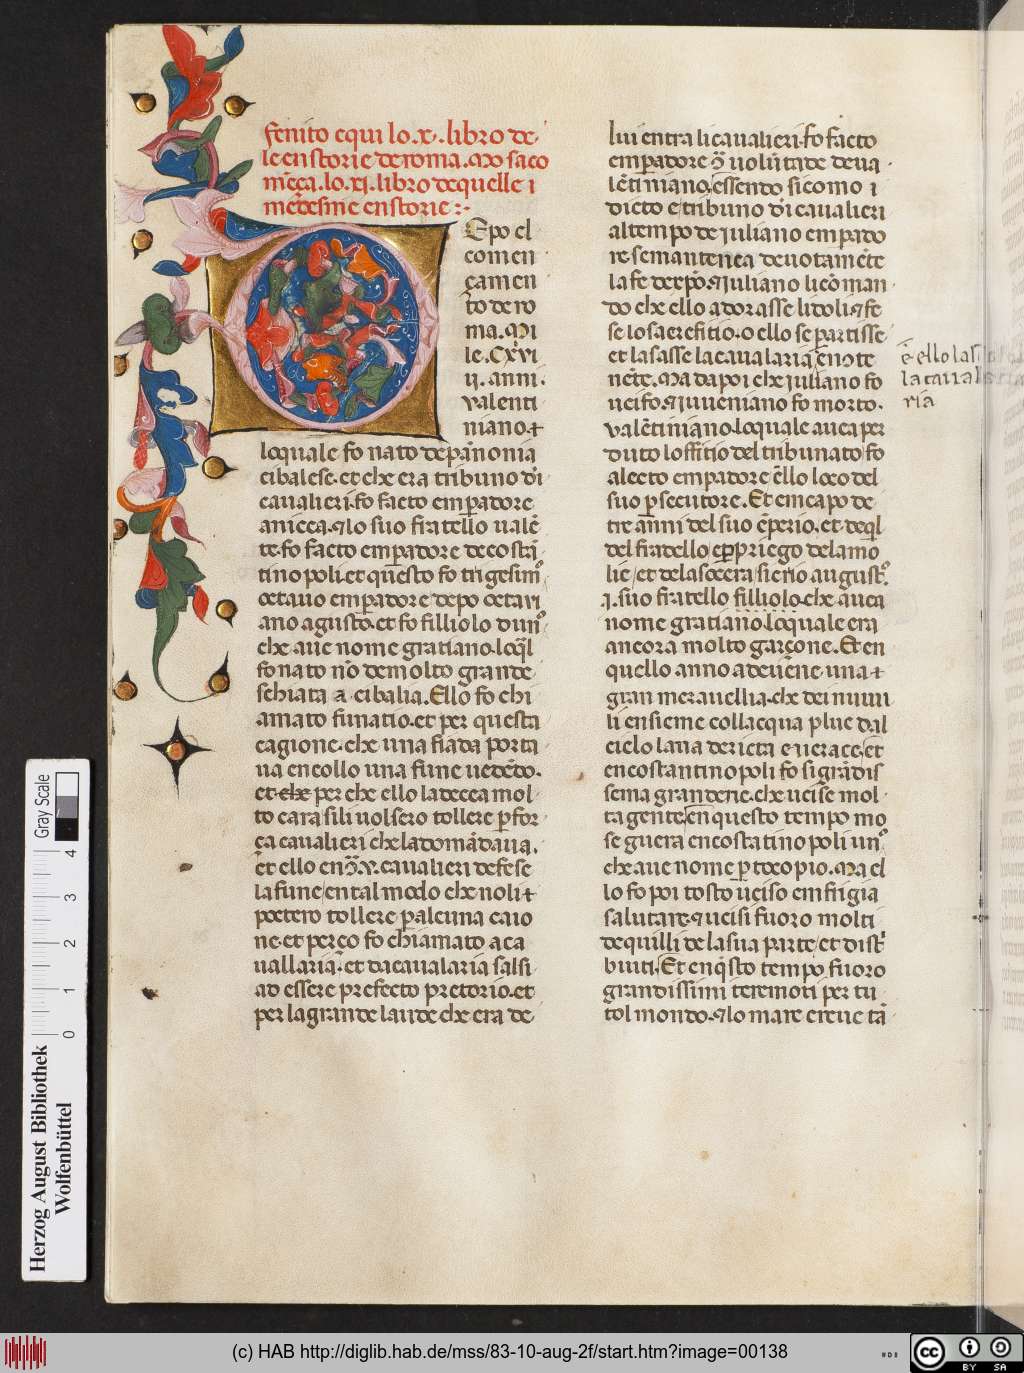 Fenito e qui lo .x. libro de
le enstorie de roma. Mo saco
mẽça .lo. xj. libro de quelle i
medesme enstorie :-
Epo el
comen
çamen
to de ro
ma. Mi
le. Cxvi
ij. anni.
valenti
niano ⁊
loquale fo nato de pãnonia
cibalese. et che era tribuno di
cavalieri. fo facto emperadore
a nicea. ⁊ lo suo fratello valẽ
te. fo facto emperadore de costã
tinopoli. et questo fo trigesimº
octavo emperadore depo octavi
ano agusto. et fo filliolo dunº
che ave nome gratiano. loq̃l
fo nato nõ de molto grande
schiata a cibalia. Ello fo chi
amato funatio. et per questa
cagione. che una fiada porta
va en collo una fune vedẽdo.
et che per che ello la decea mol
to cara sili volsero tollere p for
ça cavalieri che la domãdava.
et ello en .v. cavalieri defese
la fune en tal modo che noli ⁊
poetero tollere p alcuna caio
ne. et perço fo chiamato a ca
vallaria. et da cavalaria salsi
ad essere prefecto pretorio. et
per la grande laude che era de
lui entra li cavalieri. fo facto
emperadore volũtade de va
lẽtiniano. essendo sicomo i
dicto e tribuno di cavalieri
al tempo de Juliano emperado
re semantenea devotamẽte
la fe de xp̃o. ⁊ Juliano li cõman
do che ello adorasse lidoli. ⁊ fe
se lo sacrefitio. o ello se partisse
et lasasse la cavalaria enõte
nẽte. Ma dapoi che Juliano fo
ucifo. ⁊ Juveniano fo morto.
valẽtiniano. loquale avea per
duto loffitio del tribunato fo
alecto empadore ẽllo loco del
suo psecutore. Et en capo de
tre anni del suo ẽperio. et deq̃l
del fradello e p priego dela mo
lie, et dela socera fierio august.
⁊. suo fratello filliolo. che avea
nome gratiano. loquale era
ancora molto garçone. Et en
quello anno adevẽne una ⁊
gran meravellia. che dei nuvi
li ensieme coll acqua plue dal
cielo lana dericta e verace, et
en costantinopoli fo si grãdis
sema grandene. che ucise mol
ta gente en questo tempo mo
se guera en costatinopoli unº
che ave nome pcocopio. Ma el
lo fo poi tosto uciso em frigia
salutare. ⁊ ucisi fuoro molti
de quilli de la sua parte, et dist
buiti. Et en q̃sto tempo fuoro
grandissimi teremoti per tu
tol mondo. ⁊ lo mare creve tã
ẽ ello las
la caval
ria
Gray Scale
4
3
2
1
0
Herzog August Bibliothek
Wolfenbüttel
(c) HAB http://diglib.hab.de/mss/83-10-aug-2f/start.htm?image=00138
cc
BY
SA